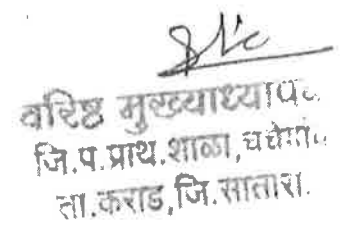 वरिष्ठ मुख्याध्यापक
जि.प.प्राथ.शाळा,
ता.कराड,जि.सातारा.